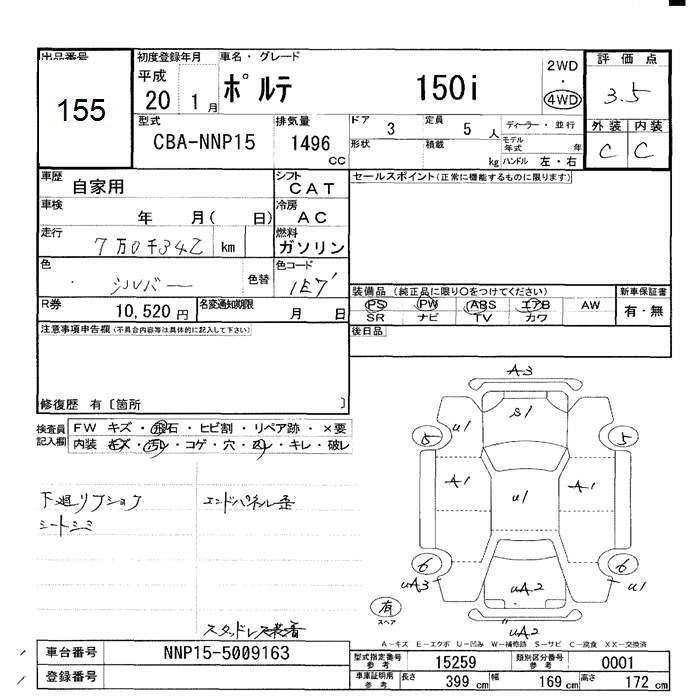 出品番号
155
初度登録年月
平成 20 1月
車名・グレード
ポルテ 150i
2WD
・
4WD
評価点
3.5
外装 内装
C C
型式
CBA-NNP15
排気量
1496 CC
ドア 3
定員 5 人
ディーラー・並行
形状
積載 kg
モデル年式 年
ハンドル 左・右
車歴
自家用
シフト
CAT
セールスポイント(正常に機能するものに限ります)
車検
年 月( 日)
冷房
AC
走行
7万0千342 km
燃料
ガソリン
色
シルバー
色替
色コード
1E7
R券
10,520円
名変通知期限
月 日
装備品(純正品に限り○をつけてください)
PS PW ABS エアB AW
SR ナビ TV カワ
新車保証書
有・無
後日品
注意事項申告欄(不具合内容等は具体的に記入して下さい)
修復歴 有〔箇所 〕
検査員記入欄
FW キズ・飛石・ヒビ割・リペア跡・×要
内装 キズ・汚レ・コゲ・穴・スレ・キレ・破レ
下廻リ
シートシミ
エンドパネル歪
スタッドレス装着
A3
u1
S1
5
5
A1
u1
A1
6
6
uA3
uA2
u1
有
スペア
uA2
A-キズ E-エクボ U-凹み W-補修跡 S-サビ C-腐食 XX-交換済
車台番号
NNP15-5009163
登録番号
型式指定番号 参考
15259
類別区分番号 参考
0001
車庫証明用 参考
長さ 399 cm
幅 169 cm
高さ 172 cm